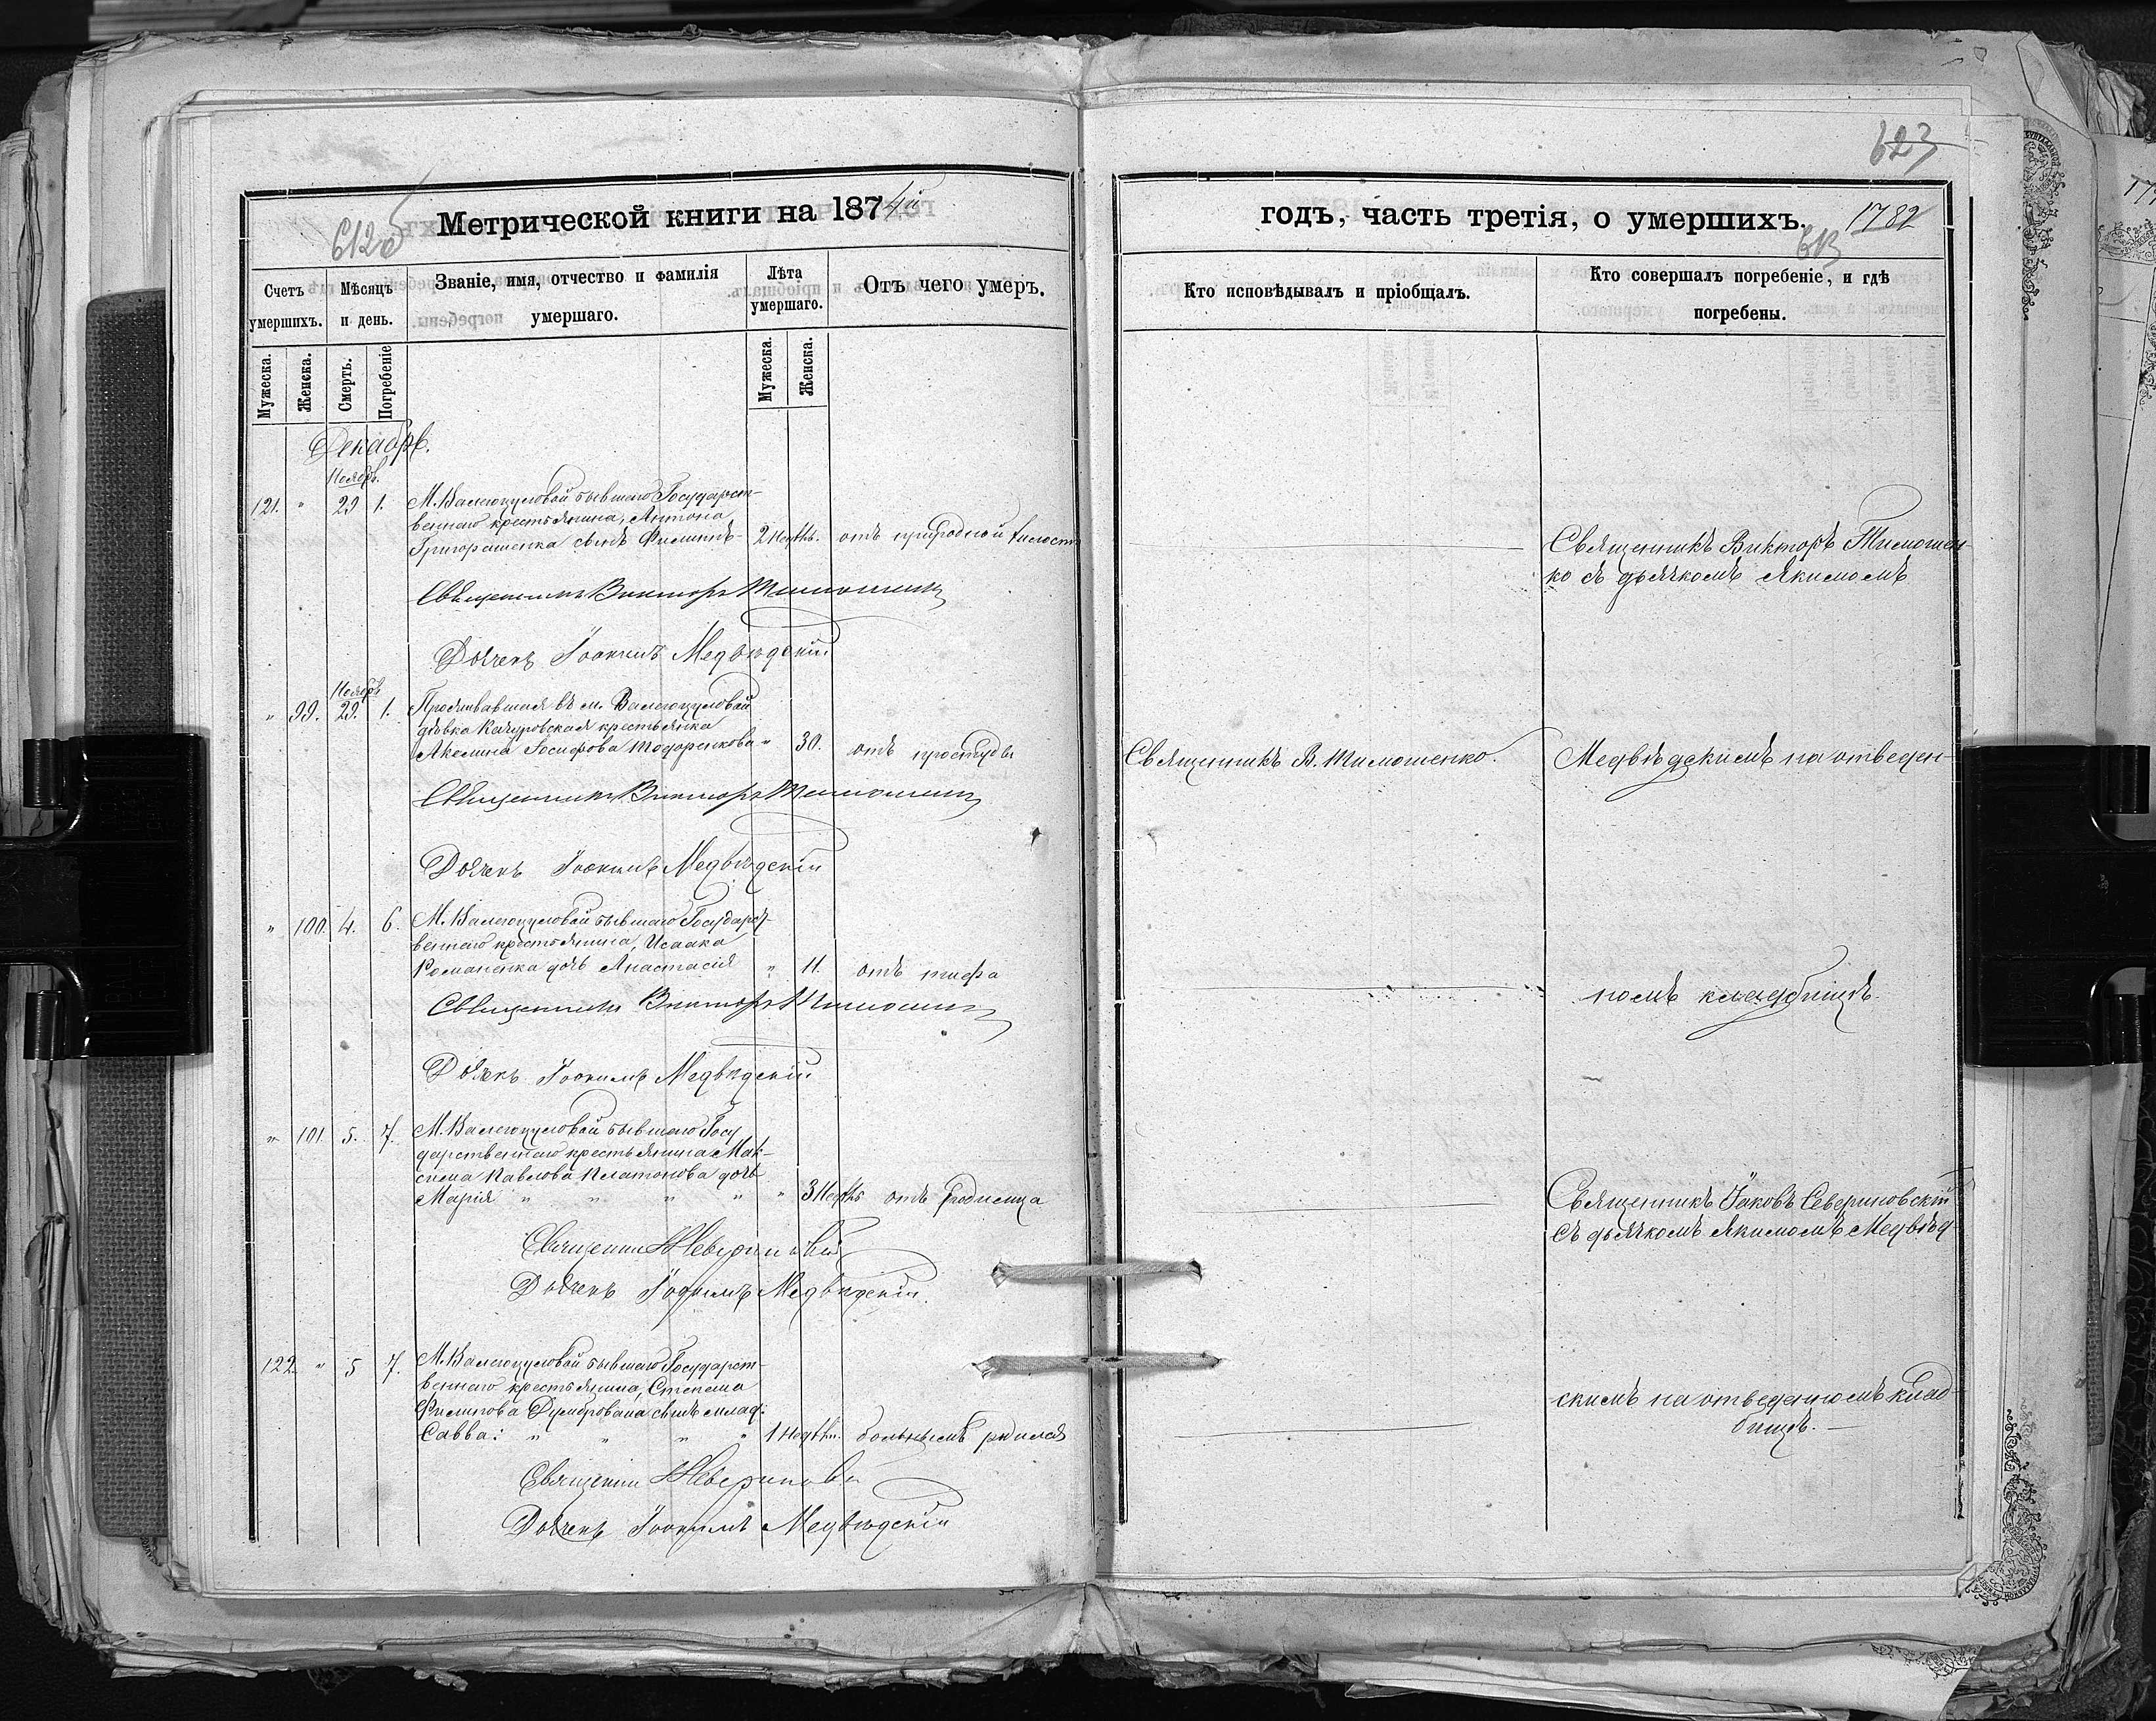 623
Метрической книги на 1874й
612об
годъ, часть третія, о умершихъ.
1782
613
Счетъ умершихъ.
Мѣсяцъ и день.
Званіе, имя, отчество и фамилія умершаго.
Лѣта умершаго.
Отъ чего умеръ.
Кто исповѣдывалъ и пріобщалъ.
Кто совершалъ погребеніе, и гдѣ погребены.
Мужеска.
Женска.
Смерть.
Погребеніе
Мужеска.
Женска.
Декабрь.
Ноябр.
121. " 29 1. М. Валегоцуловой бывшаго Государст-
веннаго крестьянина, Антона
Григорашенка сынъ Филиппъ 2 недѣль. отъ природной
Священникъ Викторъ Тимошен-
ко съ дьячкомъ Якимомъ
Священникъ Викторъ Тимошенко
Дьячекъ Іоакимъ Медвѣдскій
Ноябрь
" 99. 29. 1. Проживавшая въ м. Валегоцуловой
дѣвка Качуровская крестьянка
Акелина Іосифова Тодоренкова " 30. отъ простуды
Священникъ В. Тимошенко.
Медвѣдскимъ на отведен-
Священникъ Викторъ Тимошенко
Дьячекъ Іоакимъ Медвѣдскій
" 100. 4. 6. М. Валегоцуловой бывшаго Государст-
веннаго крестьянина, Исаака
Романенка дочь Анастасія " 11. отъ тифа
номъ кладбищѣ.
Священникъ Викторъ Тимошенко
Дьячекъ Іоакимъ Медвѣдскій
" 101. 5. 7. М. Валегоцуловой бывшаго Госу
дарственнаго крестьянина Мак-
сима Павлова Платонова дочь
Марія " " " " " 3 недѣль отъ родимца
Священникъ Іаковъ Севериновскій
съ дьячкомъ Якимомъ Медвѣд-
Священникъ Севериновскій
Дьячекъ Іоакимъ Медвѣдскій
122. " 5 7. М. Валегоцуловой бывшаго Государст-
веннаго крестьянина, Степана
Филипова Думбрована сынъ млад:
Савва: " " " " 1 недѣли. больнымъ рдился
скимъ на отведенномъ клад-
бищѣ.
Священникъ Севериновскій
Дьячекъ Іоакимъ Медвѣдскій